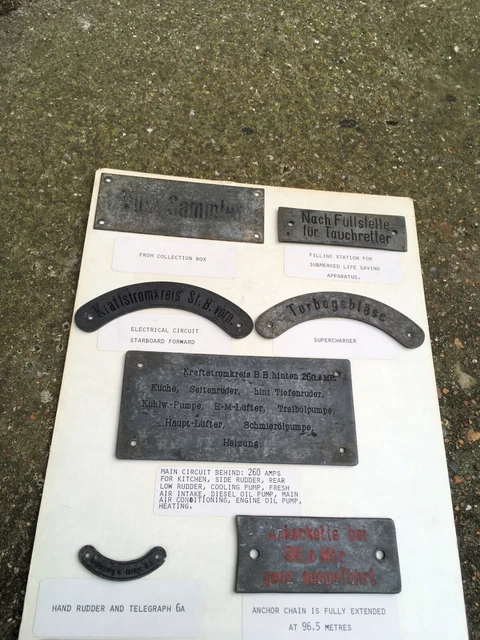 Sammler
FROM COLLECTION BOX
Nach Füllstelle
für Tauchretter
FILLING STATION FOR
SUBMERGED LIFE SAVING
APPARATUS.
Kraftstromkreis St.B. vorn.
ELECTRICAL CIRCUIT
STARBOARD FORWARD
Torbogebläse
SUPERCHARGER
Kraftstromkreis B.B. hinten 260
Küche, Seitenruder, hint Tiefenruder,
Kühlw.-Pumpe, E-M-Lüfter, Treibölpumpe,
Haupt-Lüfter, Schmierölpumpe,
Heizung.
MAIN CIRCUIT BEHIND: 260 AMPS
FOR KITCHEN, SIDE RUDDER, REAR
LOW RUDDER, COOLING PUMP, FRESH
AIR INTAKE, DIESEL OIL PUMP, MAIN
AIR CONDITIONING, ENGINE OIL PUMP,
HEATING.
HAND RUDDER AND TELEGRAPH 6A
ANCHOR CHAIN IS FULLY EXTENDED
AT 96.5 METRES